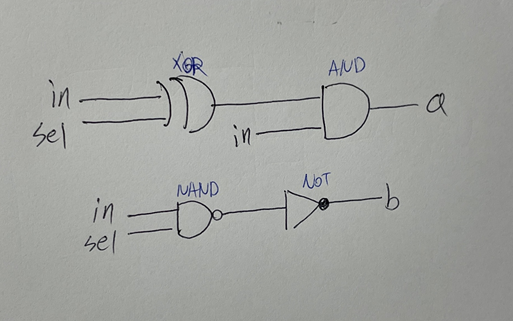 XOR AND
in
sel in a
NAND NOT
in b
sel